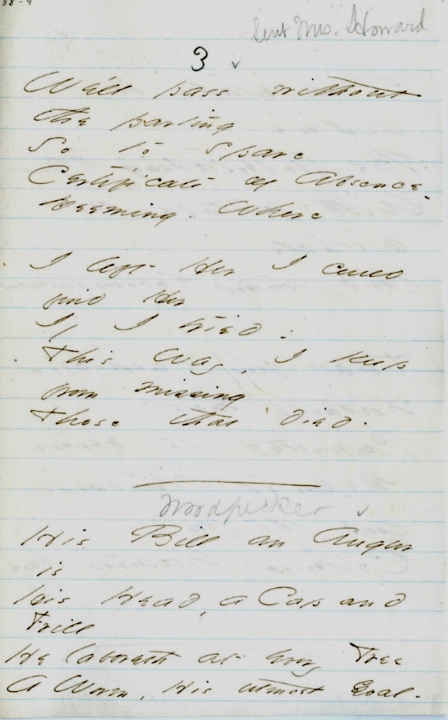 Sent Mrs. Howard
3
We'll pass without
the parting
So to spare
Certificate of Absence -
Deeming where
I left Her I could
find Her
If I tried -
This way, I keep
from missing
Those that died.
Woodpecker
His Bill an Augur
is
His Head, a Cap and
Frill
He laboreth at every Tree
A Worm, His utmost Goal -